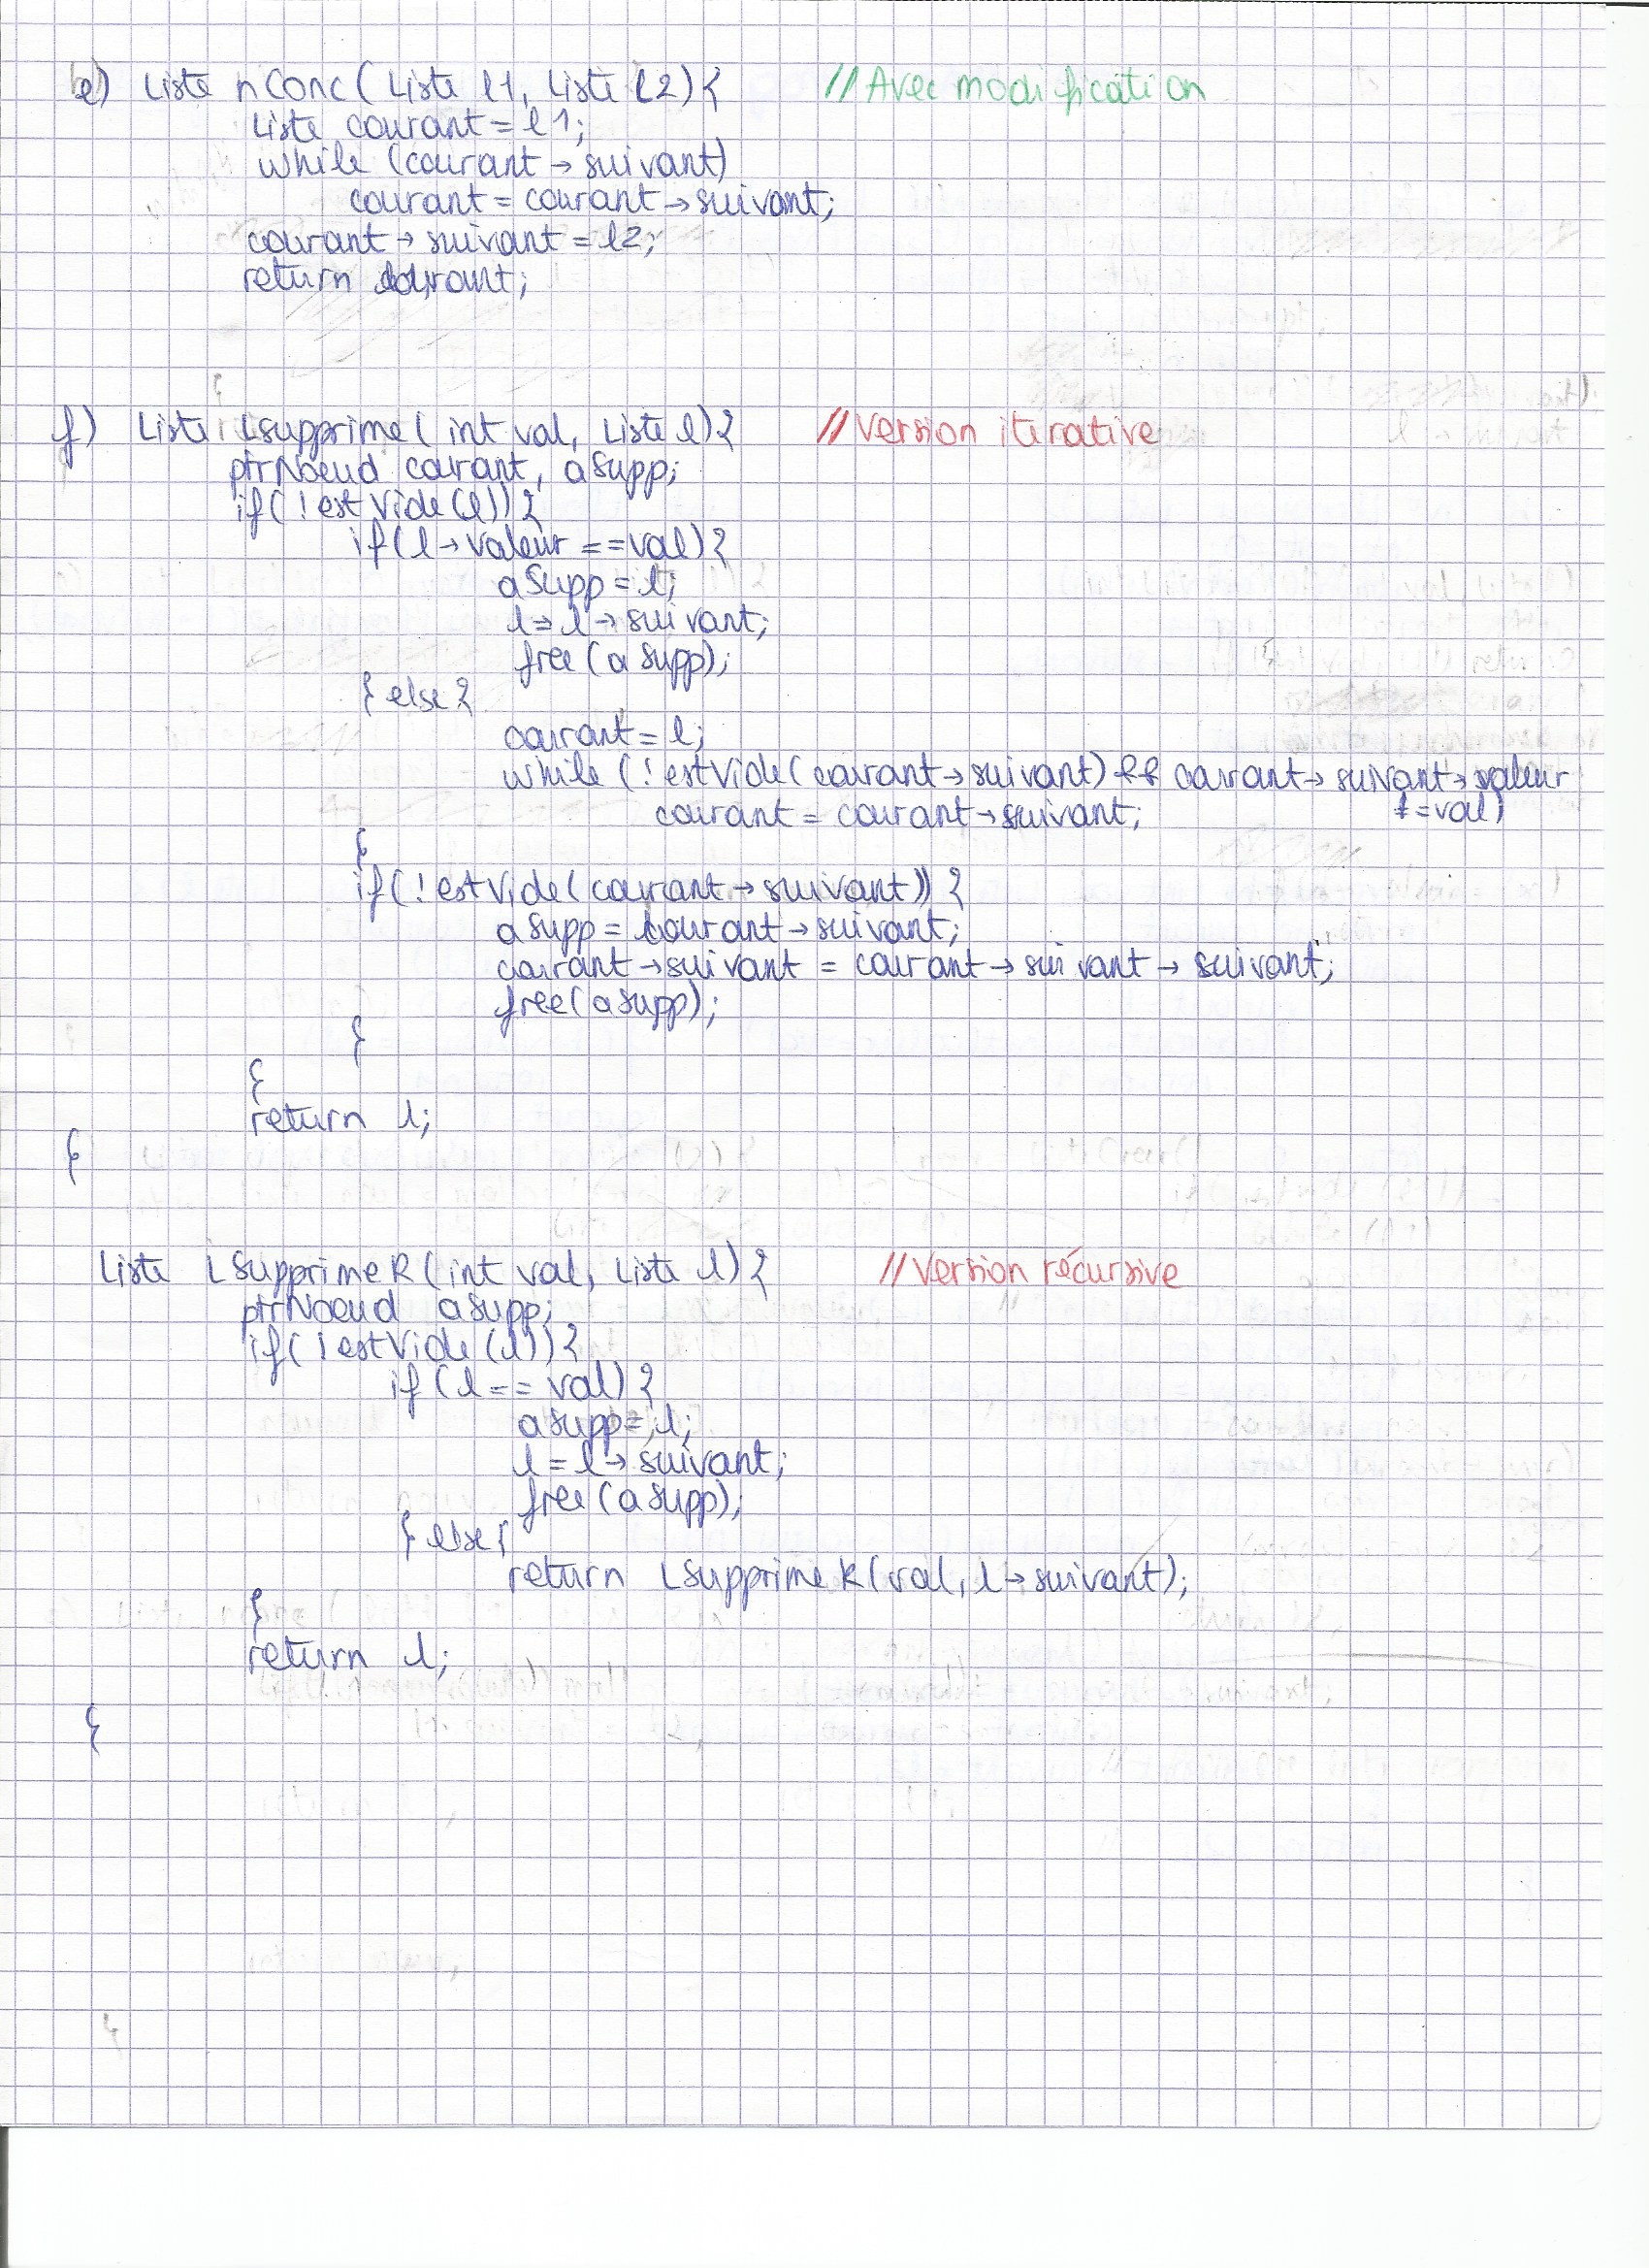 e) Liste nConc ( Liste l1, Liste l2) { //Avec modification
Liste courant = l1;
while (courant → suivant)
courant = courant → suivant;
courant → suivant = l2;
return
f) Liste Lsupprime ( int val, Liste l) { //Version iterative
ptrNoeud courant, aSupp;
if ( ! estVide (l)) {
if ( l → valeur == val) {
aSupp = l;
l = l → suivant;
free (aSupp);
} else {
courant = l;
while ( ! estVide ( courant → suivant) && courant → suivant → valeur
!= val)
courant = courant → suivant;
}
if ( ! estVide ( courant → suivant)) {
aSupp = courant → suivant;
courant → suivant = courant → suivant → suivant;
free (aSupp);
}
}
return l;
}
Liste LsupprimeR ( int val, Liste l) { //Version récursive
ptrNoeud aSupp;
if ( ! estVide (l)) {
if ( l == val) {
aSupp = l;
l = l → suivant;
free (aSupp);
} else {
return LsupprimeR (val, l → suivant);
}
return l;
}